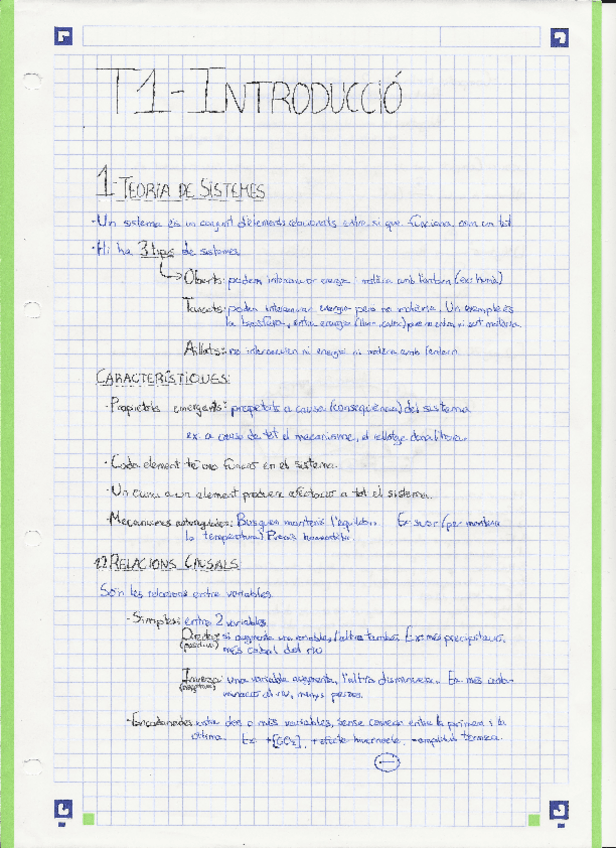 T1-INTRODUCCIÓ
1-TEORIA DE SISTEMES
-Un sistema és un conjunt d'elements relacionats entre si que funciona com un tot
-Hi ha 3 tipus de sistemes
Oberts: poden intercanviar energia i matèria amb l'entorn (ex: humà)
Tancats: poden intercanviar energia pero no matèria. Un exemple és
la biosfera, entra energia (llum, calor) pero no entra ni surt matèria.
Aïllats: no intercanvien ni energia ni matèria amb l'entorn
CARACTERÍSTIQUES:
-Propietats emergents: propietats a causa (conseqüència) del sistema
ex. a causa de tot el mecanisme, el rellotge dona l'hora.
-Cada element té una funció en el sistema.
-Un canvi a un element produeix afectació a tot el sistema.
-Mecanismes autoreguladors: Busquen mantenir l'equilibri. Ex suar (per mantenir
la temperatura)
1.2 RELACIONS CAUSALS
Són les relacions entre variables
-Simples: entre 2 variables
Directa: si augmenta una variable, l'altra també. Ex: més precipitacions,
(positiva) més cabal del riu
Inversa: una variable augmenta, l'altra disminueix. Ex més
(negativa) al riu, menys peixos.
-Encadenades entre dos o més variables, sense connexió entre la primera i la
última. Ex +[CO2], +efecte hivernacle, -amplitud tèrmica.